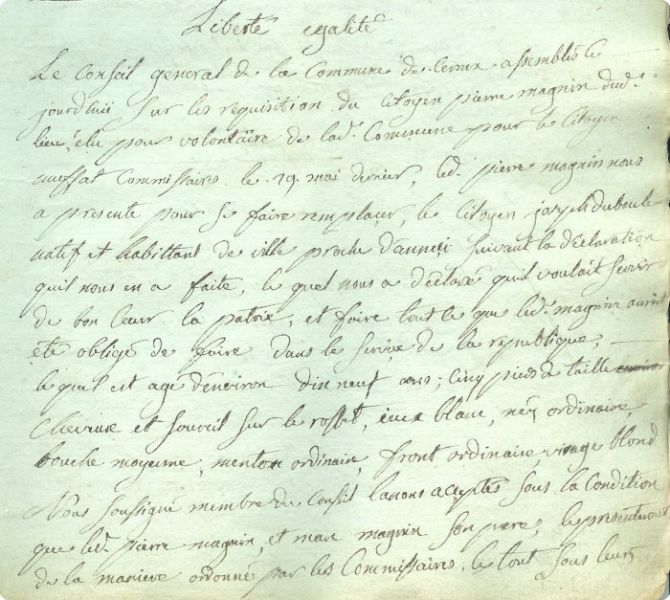 Liberté egalité
Le Conseil general de la Commune de assemblés ce
jourdhui sur les requisition du Citoyen pierre magnin dud.
lieu, élu pour volontaire de lad. Commune pour le Citoyen
Commissaires le 19 mai dernier, led. pierre magnin nous
a presenté pour se faire remplacer, le Citoyen joseph duboule
natif et habittant de ville proche d'anneci suivant la déclaration
quil nous en a faite, le quel nous a déclaré quil voulait servir
de bon Coeur la patrie, et faire tout ce que led. magnin auroit
été obligé de faire dans le service de la république,
lequel est agé denviron dix neuf ans, Cinq pieds de taille
Cheveux et sourcil sur le rosset, ieux blanc, néz ordinaire,
bouche moyenne, menton ordinaire, front ordinaire, visage blond
Nous soussigné membre du Conseil lavons acceptés sous la Condition
que led. pierre magnin, et marc magnin son pere, le presenteront
de la maniere ordonné par les Commissaires, le tout sous leur